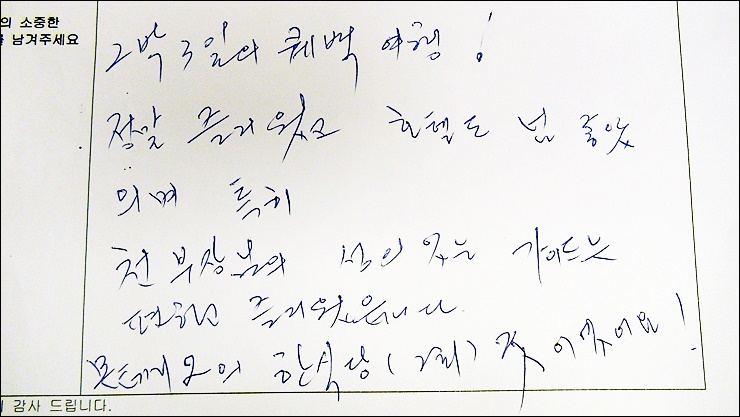 의 소중한
남겨주세요
2박 3일의 퀘백 여행!
정말 즐거웠고 호텔도 넘 좋았
으며 특히
천 부장님의 성의 있는 가이드는
편하고 즐거웠습니다
몬트리올의 한식당 (2회) 굿이었어요!
감사 드립니다.